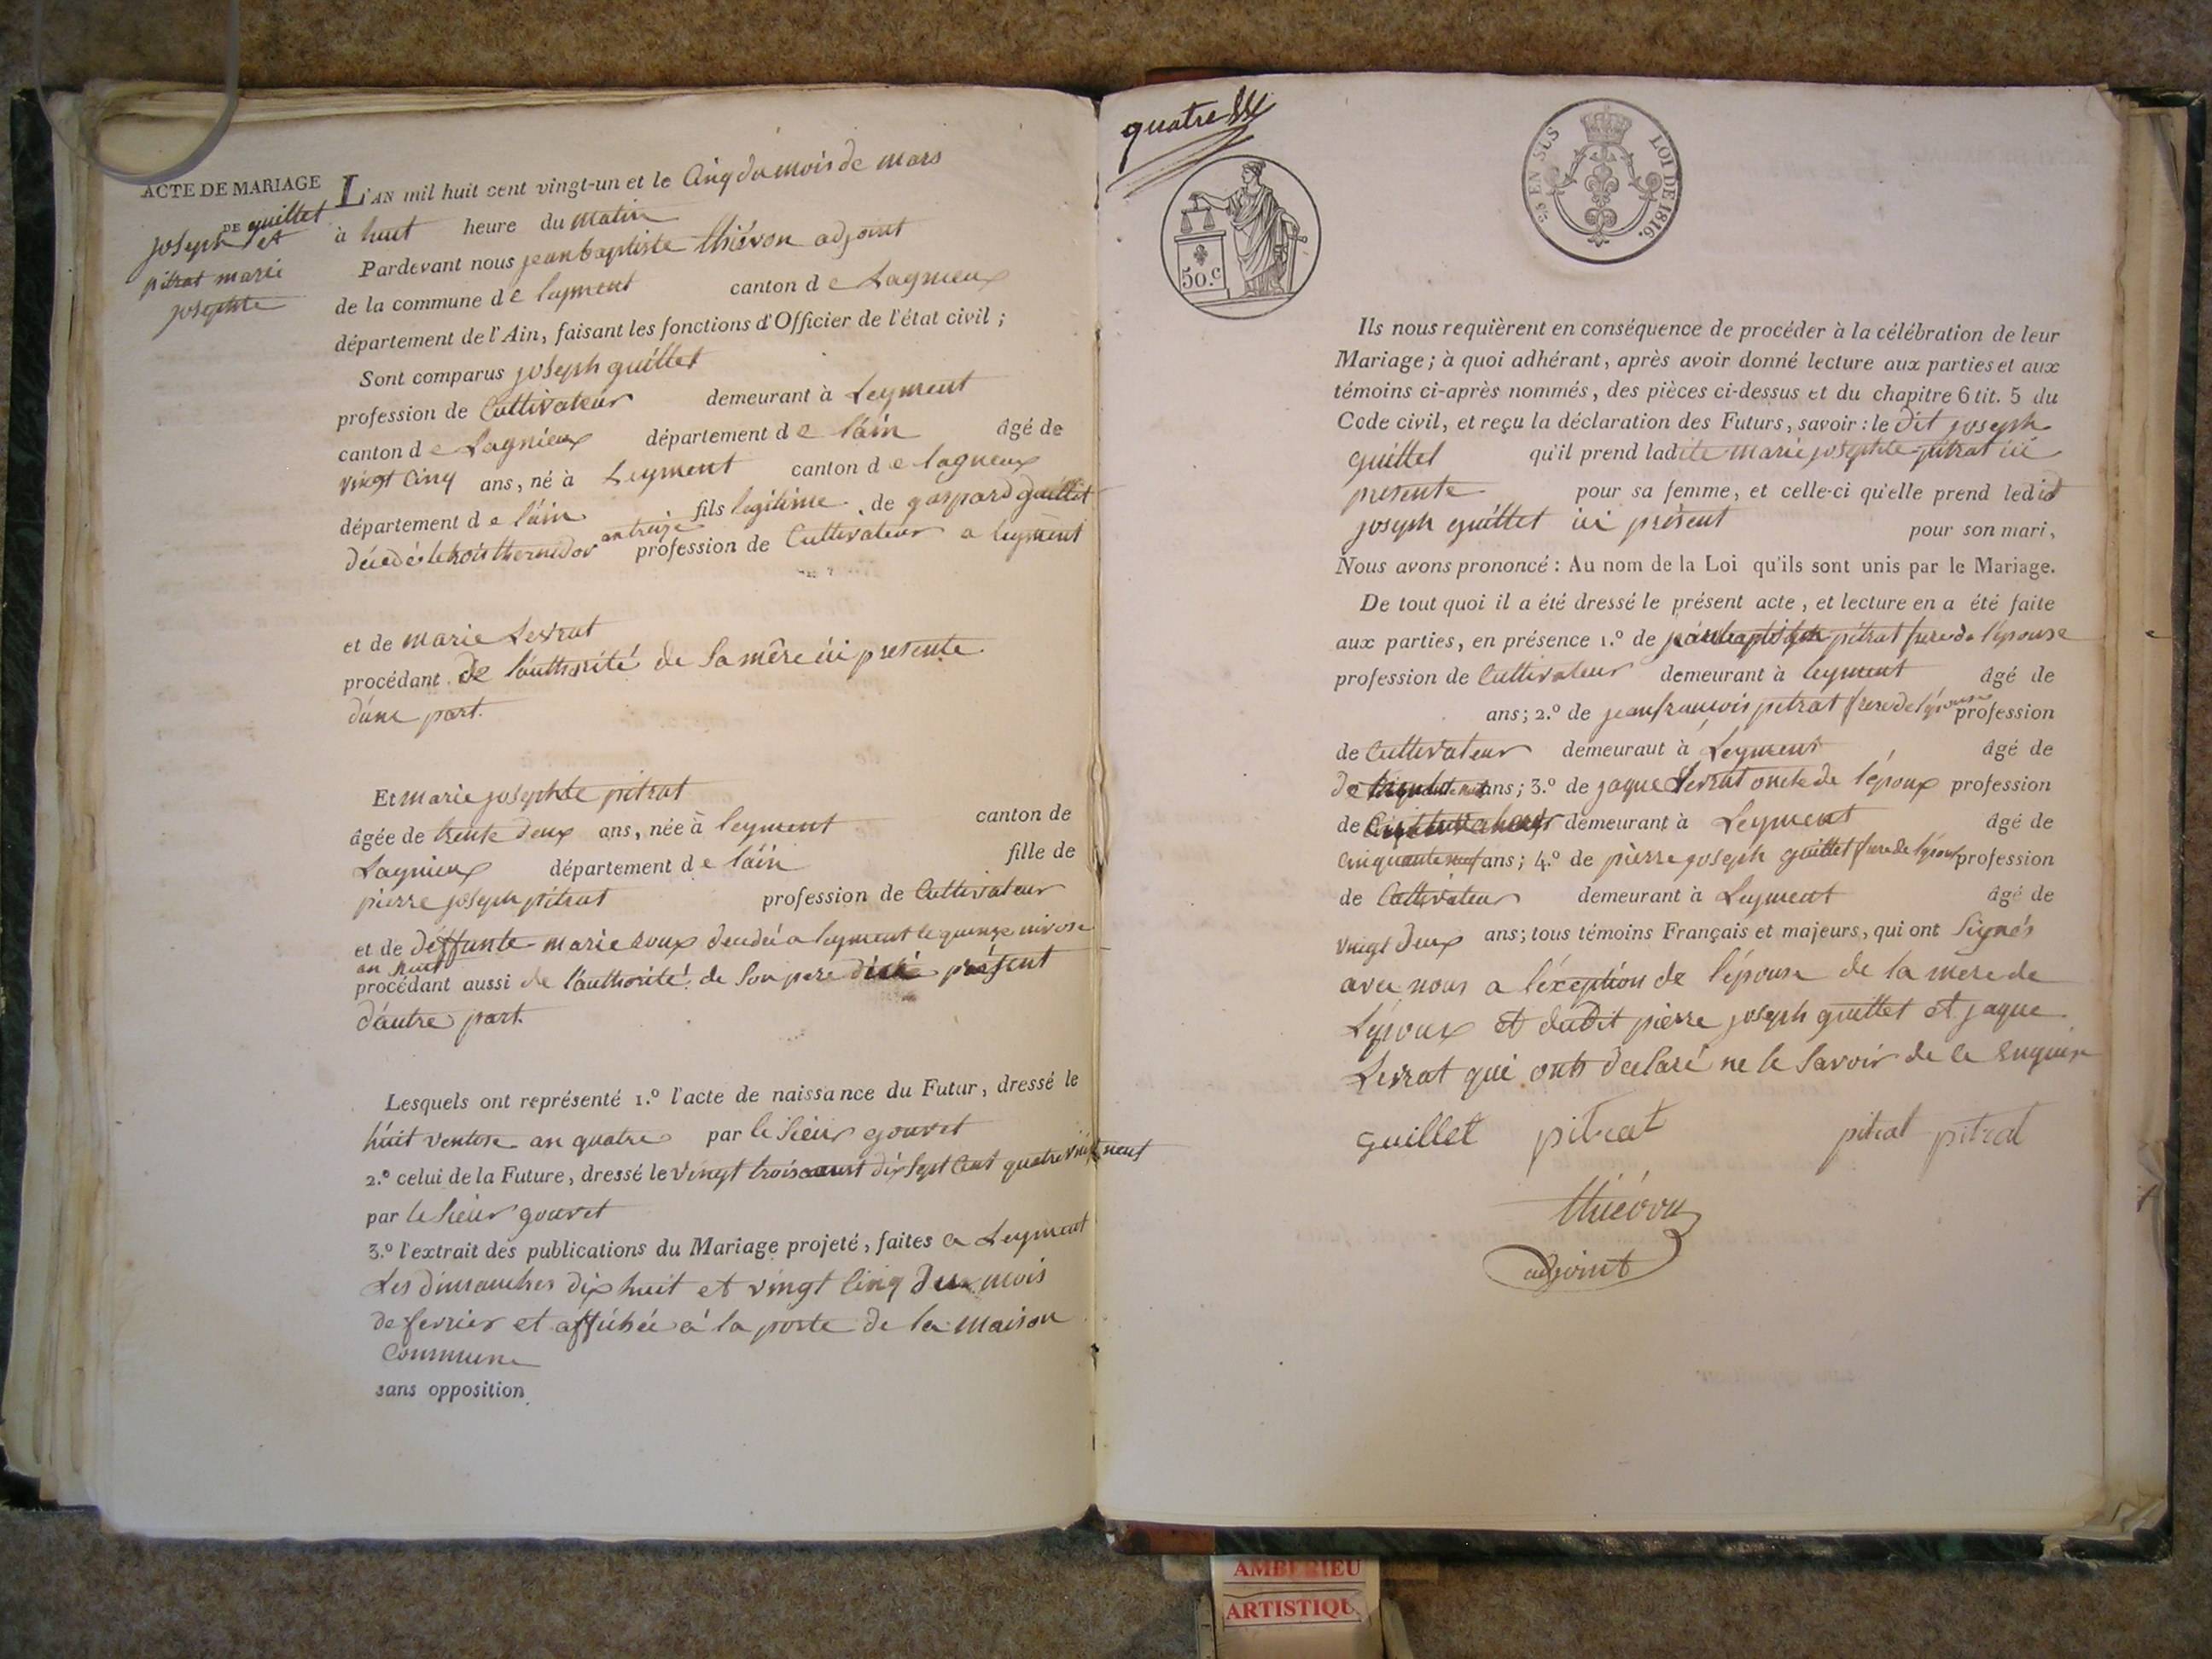 ACTE DE MARIAGE
DE guillet
joseph et
pitrat marie
josephte
L'AN mil huit cent vingt-un et le Cinq du mois de mars
à huit heure du matin
Pardevant nous jean baptiste thiévon adjoint
de la commune de leyment canton de Lagnieux
département de l'Ain, faisant les fonctions d'Officier de l'état civil ;
Sont comparus joseph guillet
profession de Cultivateur demeurant à Leyment
canton de Lagnieux département de l'áin âgé de
vingt Cinq ans, né à Leyment canton de lagnieux
département de l'áin fils legitime de gaspard guillet
décédé le trois thermidor an treize profession de Cultivateur a leyment
et de marie Levrat
procédant de l'authorité de Sa mêre ici presente
d'une part.
Et marie josephte pitrat
âgée de trente deux ans, née à leyment canton de
Lagnieux département de l'áin fille de
pierre joseph pitrat profession de Cultivateur
et de déffunte marie roux decedeé a leyment le quinze nivose
an huit
procédant aussi de l'authorité de Son pere présent
d'autre part.
Lesquels ont représenté 1.º l'acte de naissance du Futur, dressé le
huit ventose an quatre par le Sieur gouvet
2.º celui de la Future, dressé le vingt trois aout dix Sept Cent quatre vingt neuf
par le Sieur gouvet
3.º l'extrait des publications du Mariage projeté, faites a Leyment
Les dimanches dix huit et vingt Cinq du mois
de fevrier et affichée à la porte de la maison
Commune
sans opposition
quatre
25 EN SUS
LOI DE 1816.
50.c
Ils nous requièrent en conséquence de procéder à la célébration de leur
Mariage ; à quoi adhérant, après avoir donné lecture aux parties et aux
témoins ci-après nommés, des pièces ci-dessus et du chapitre 6 tit. 5 du
Code civil, et reçu la déclaration des Futurs, savoir : le dit joseph
guillet qu'il prend ladite marie josephte pitrat ici
presente pour sa femme, et celle-ci qu'elle prend ledit
joseph guillet ici présent pour son mari,
Nous avons prononcé : Au nom de la Loi qu'ils sont unis par le Mariage.
De tout quoi il a été dressé le présent acte, et lecture en a été faite
aux parties, en présence 1.º de pitrat frere de l'épouse
profession de Cultivateur demeurant à leyment âgé de
ans ; 2.º de jean françois pitrat frere de l'épouse profession
de Cultivateur demeurant à Leyment âgé de
de ans ; 3.º de jaque Levrat oncle de l'époux profession
de demeurant à Leyment âgé de
Cinquante neuf ans ; 4.º de pierre joseph guillet frere de l'époux profession
de Cultivateur demeurant à Leyment âgé de
vingt deux ans ; tous témoins Français et majeurs, qui ont Signés
avec nous a l'éxception de l'épouse de la mere de
L'époux et dudit pierre joseph guillet et jaque
Levrat qui ont declaré ne le Savoir de ce enquis
guillet pitrat pitrat pitrat
thiévon
adjoint
AMBERIEU
ARTISTIQU